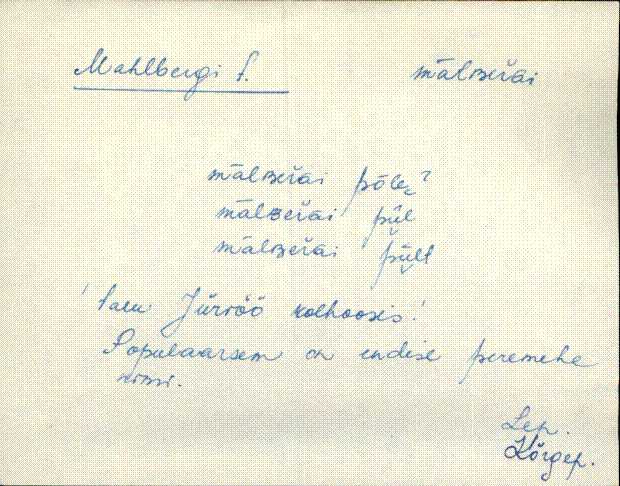 Mahlbergi t. mālʙeŕai
mālʙeŕai pǒle?
mālʙeŕai pǖl
mālʙeŕai pǖlt
'talu Jüriöö kolhoosis'
Populaarsem on endise peremehe
nimi.
Lep.
Kõrgep.